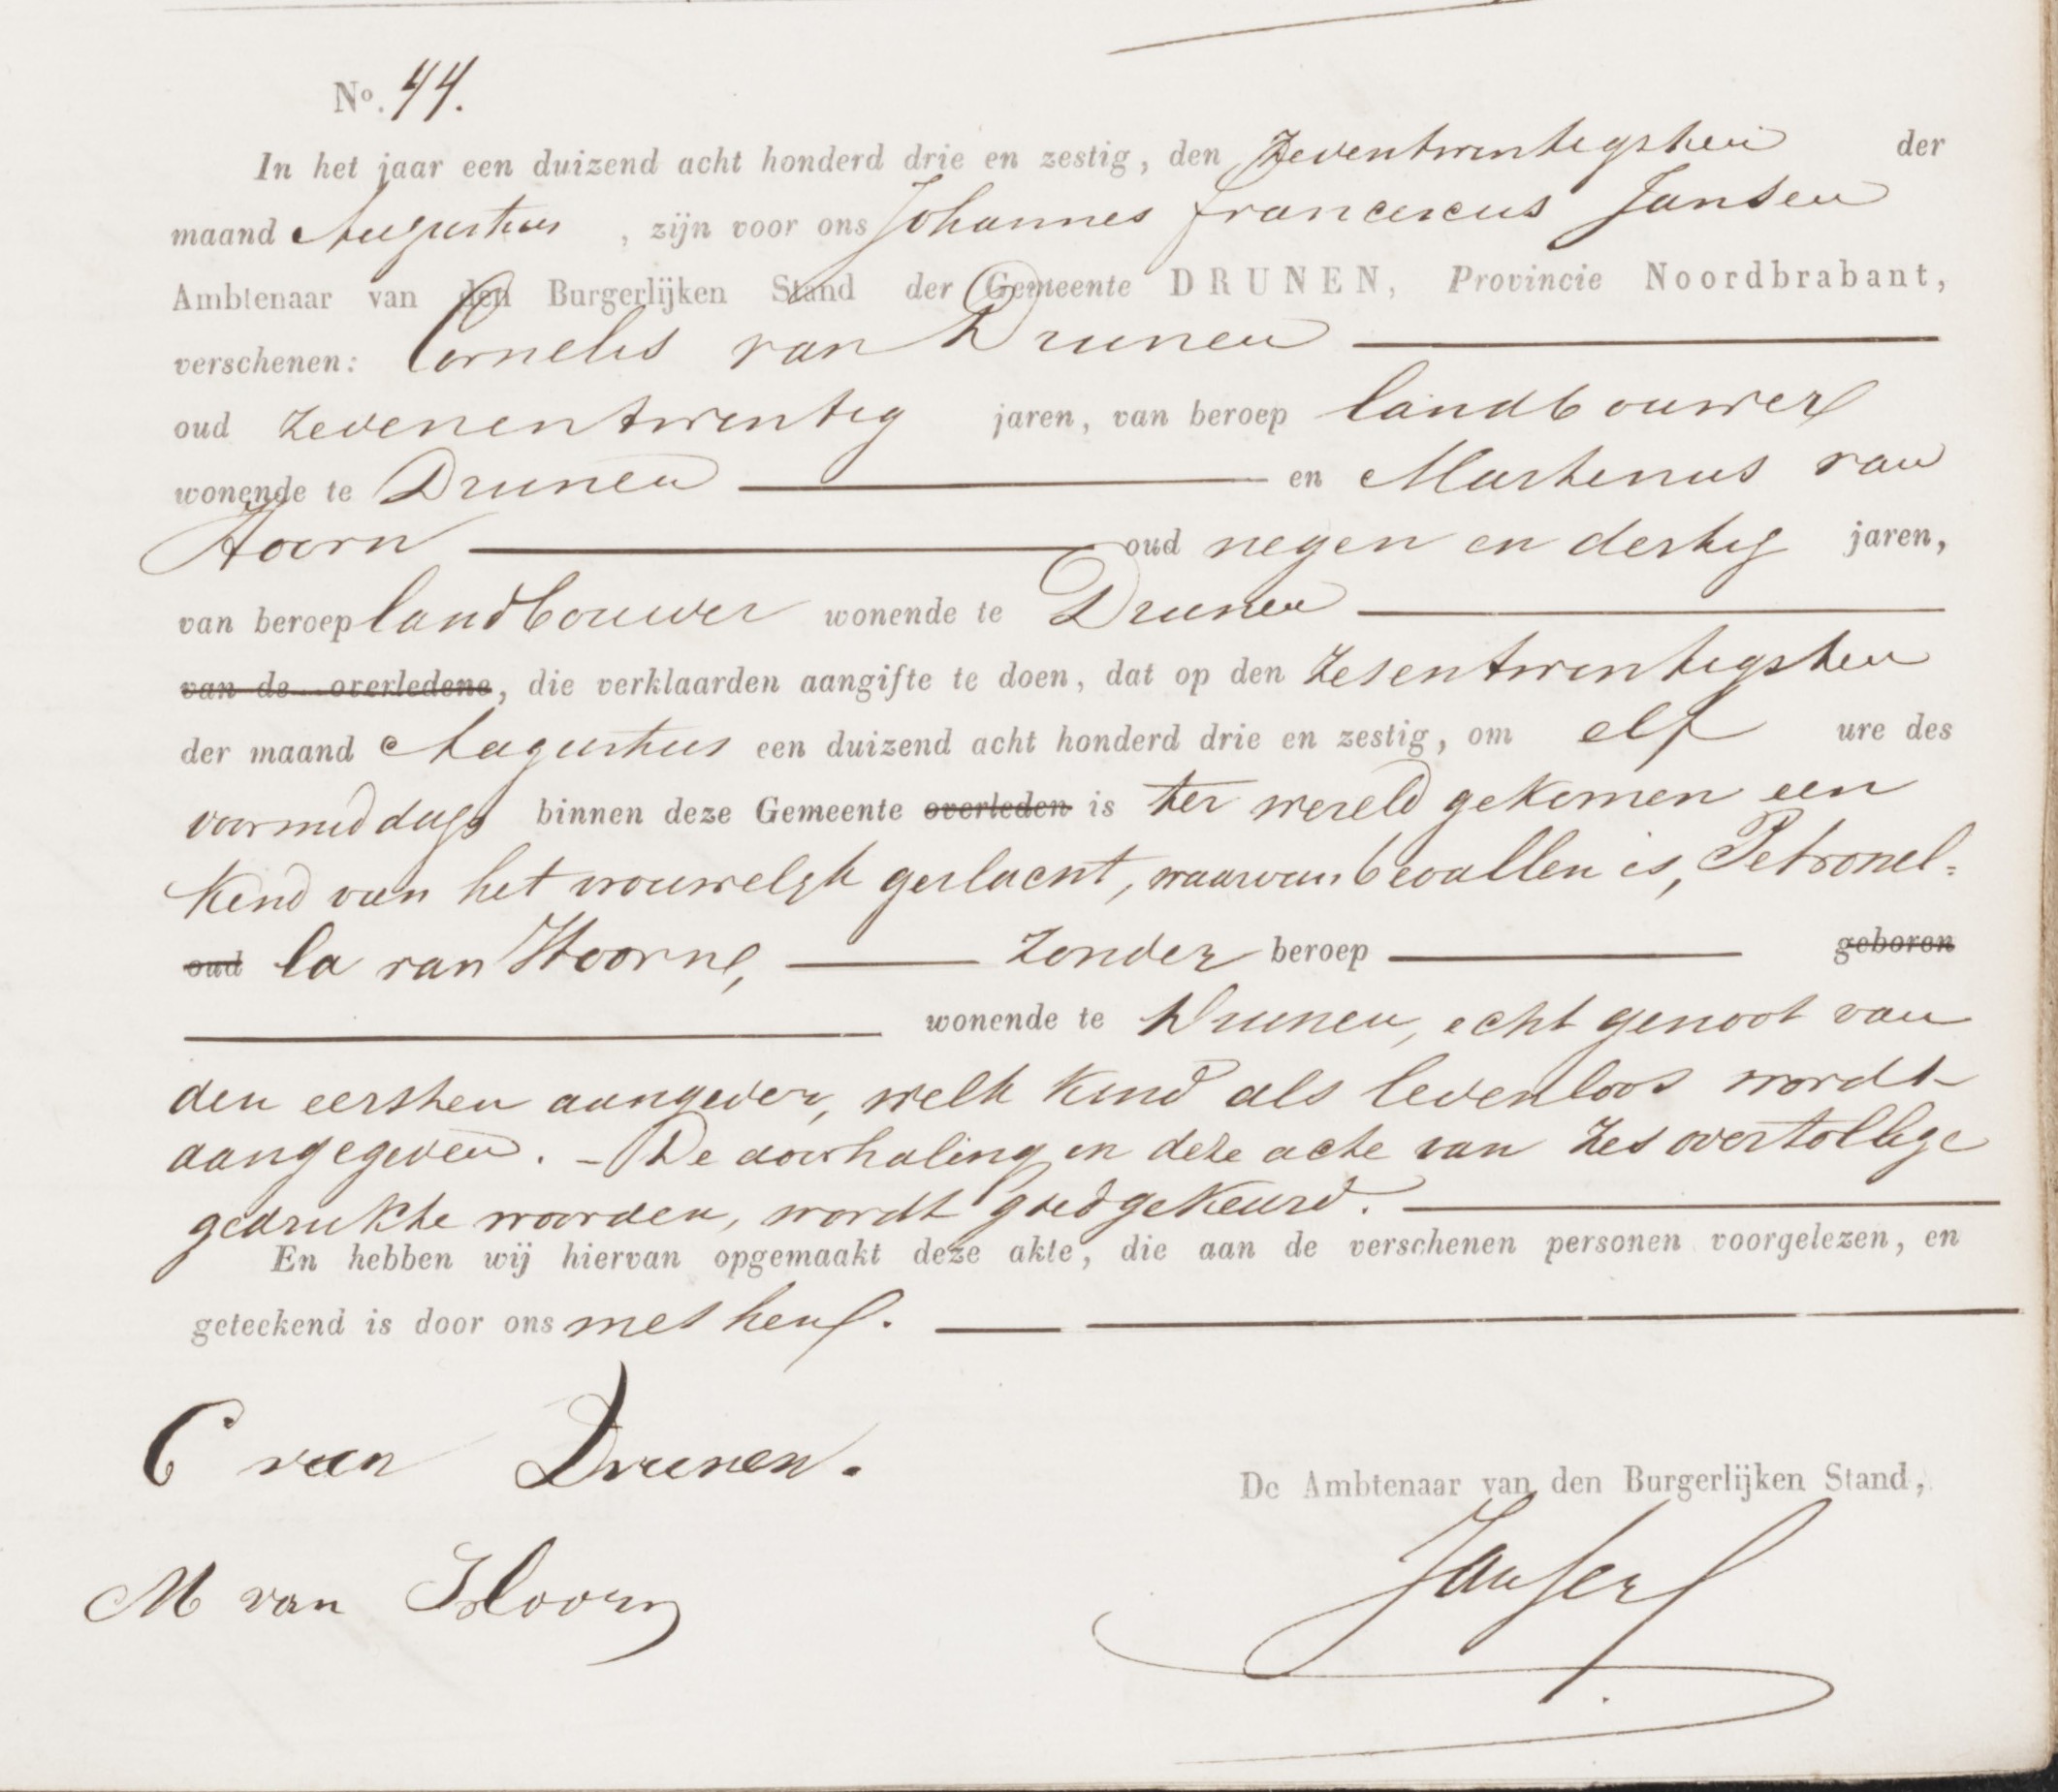 No. 44.
In het jaar een duizend acht honderd drie en zestig, den zeventwintigsten der
maand Augustus, zijn voor ons Johannes Franciscus Jansen
Ambtenaar van den Burgerlijken Stand der Gemeente DRUNEN, Provincie Noordbrabant,
verschenen: Cornelis van Drunen
oud zevenentwintig jaren, van beroep landbouwer
wonende te Drunen en Martinus van
Hoorn oud negen en dertig jaren,
van beroep landbouwer wonende te Drunen
van de overledene, die verklaarden aangifte te doen, dat op den zesentwintigsten
der maand Augustus een duizend acht honderd drie en zestig, om elf ure des
voormiddags binnen deze Gemeente overleden is ter wereld gekomen een
kind van het vrouwelijk geslacht, waarvan bevallen is, Petronel=
oud la van Hoorn, zonder beroep geboren
wonende te Drunen, echtgenoot van
den eersten aangever, welk kind als levenloos wordt
aangegeven. - De doorhaling in deze acte van zes overtollige
gedrukte woorden, wordt goedgekeurd.
En hebben wij hiervan opgemaakt deze akte, die aan de verschenen personen voorgelezen, en
geteekend is door ons met hen.
C van Drunen.
De Ambtenaar van den Burgerlijken Stand,
Jansen
M van Hoorn